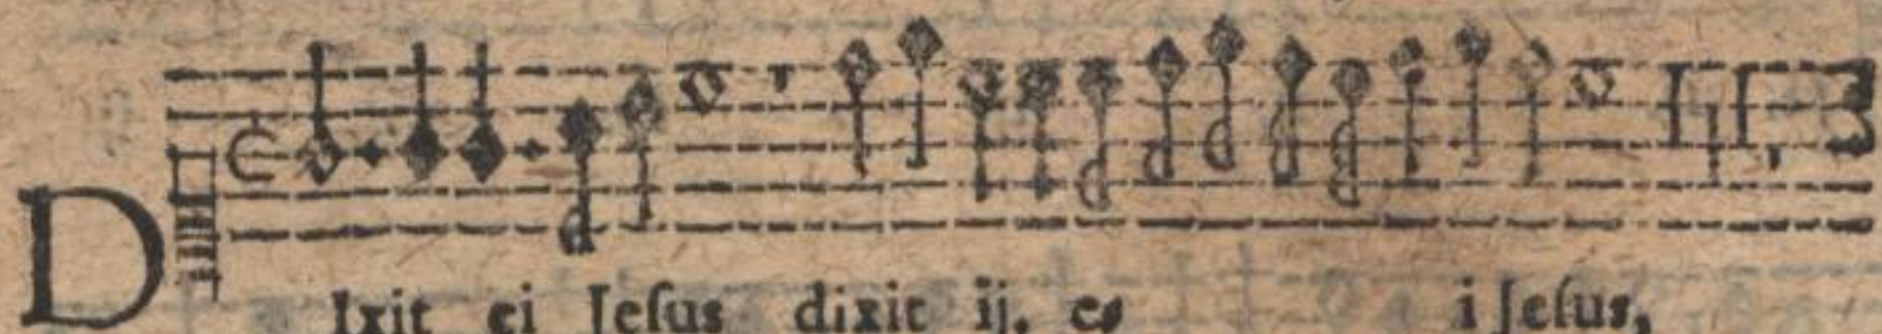 DIxit ei Jesus dixit ij. ei Jesus,